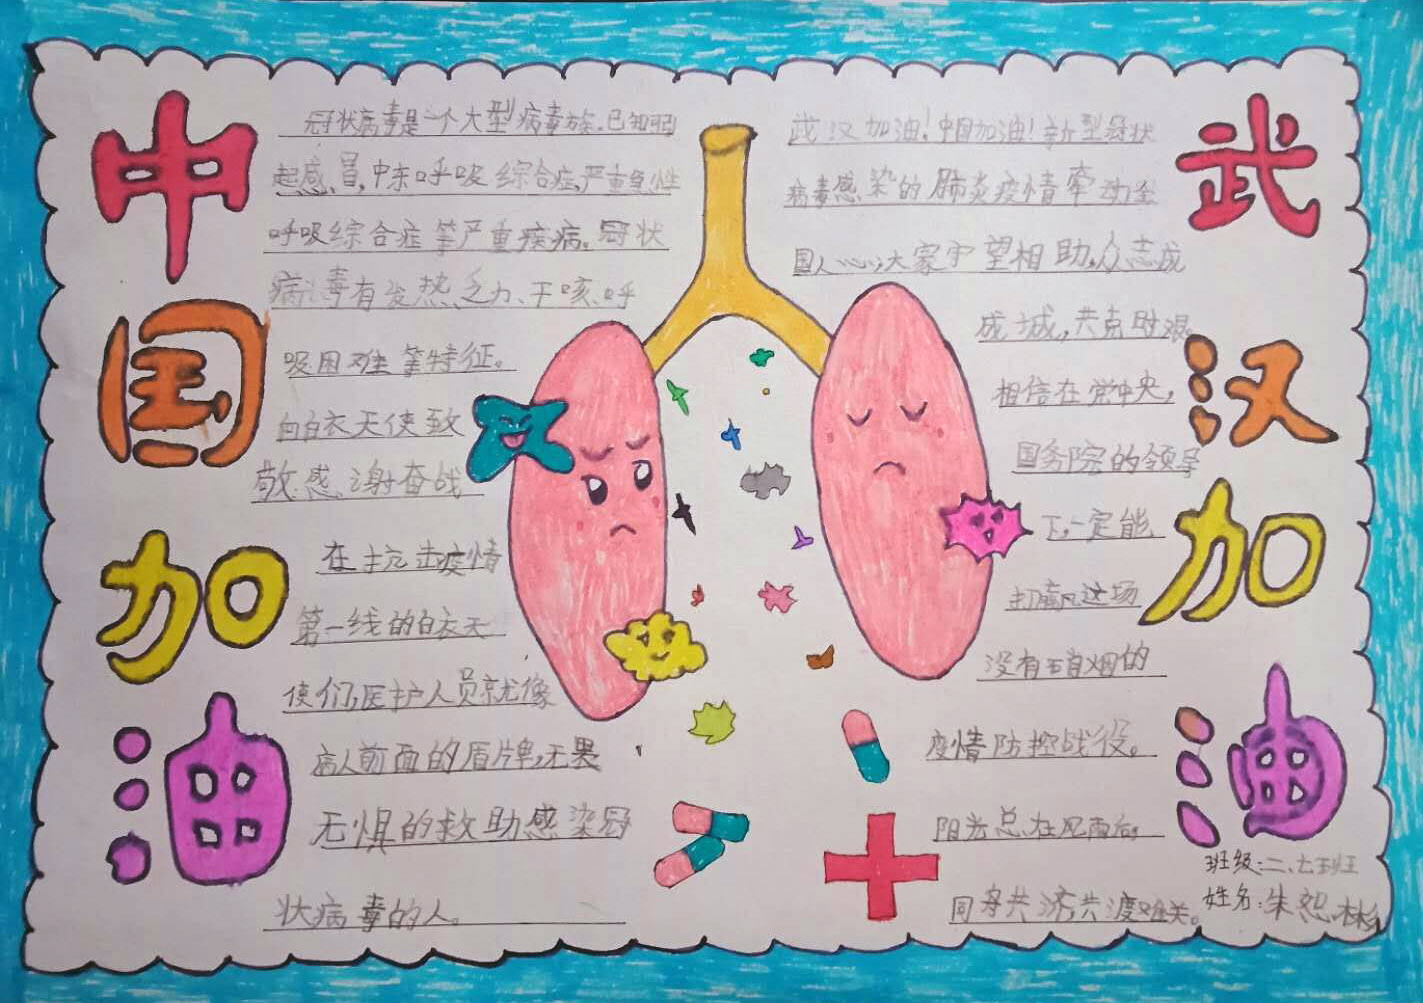 中国加油
冠状病毒是一个大型病毒族.已知可引
起感冒,中东呼吸综合症,严重急性
呼吸综合症等严重疾病。冠状
病毒有发热、乏力、干咳、呼
吸困难等特征。
向白衣天使致
敬感谢奋战
在抗击疫情
第一线的白衣天
使们,医护人员就像
病人前面的盾牌,无畏
无惧的救助感染冠
状病毒的人。
武汉加油!中国加油!新型冠状
病毒感染的肺炎疫情牵动全
国人心,大家守望相助,众志成
成城,共克时艰
相信在党中央,
国务院的领导
下,一定能
打赢这场
没有硝烟的
疫情防控战役。
阳光总在风雨后。
同舟共济共渡难关。
武汉加油
班级:二、七班
姓名:朱恕彬